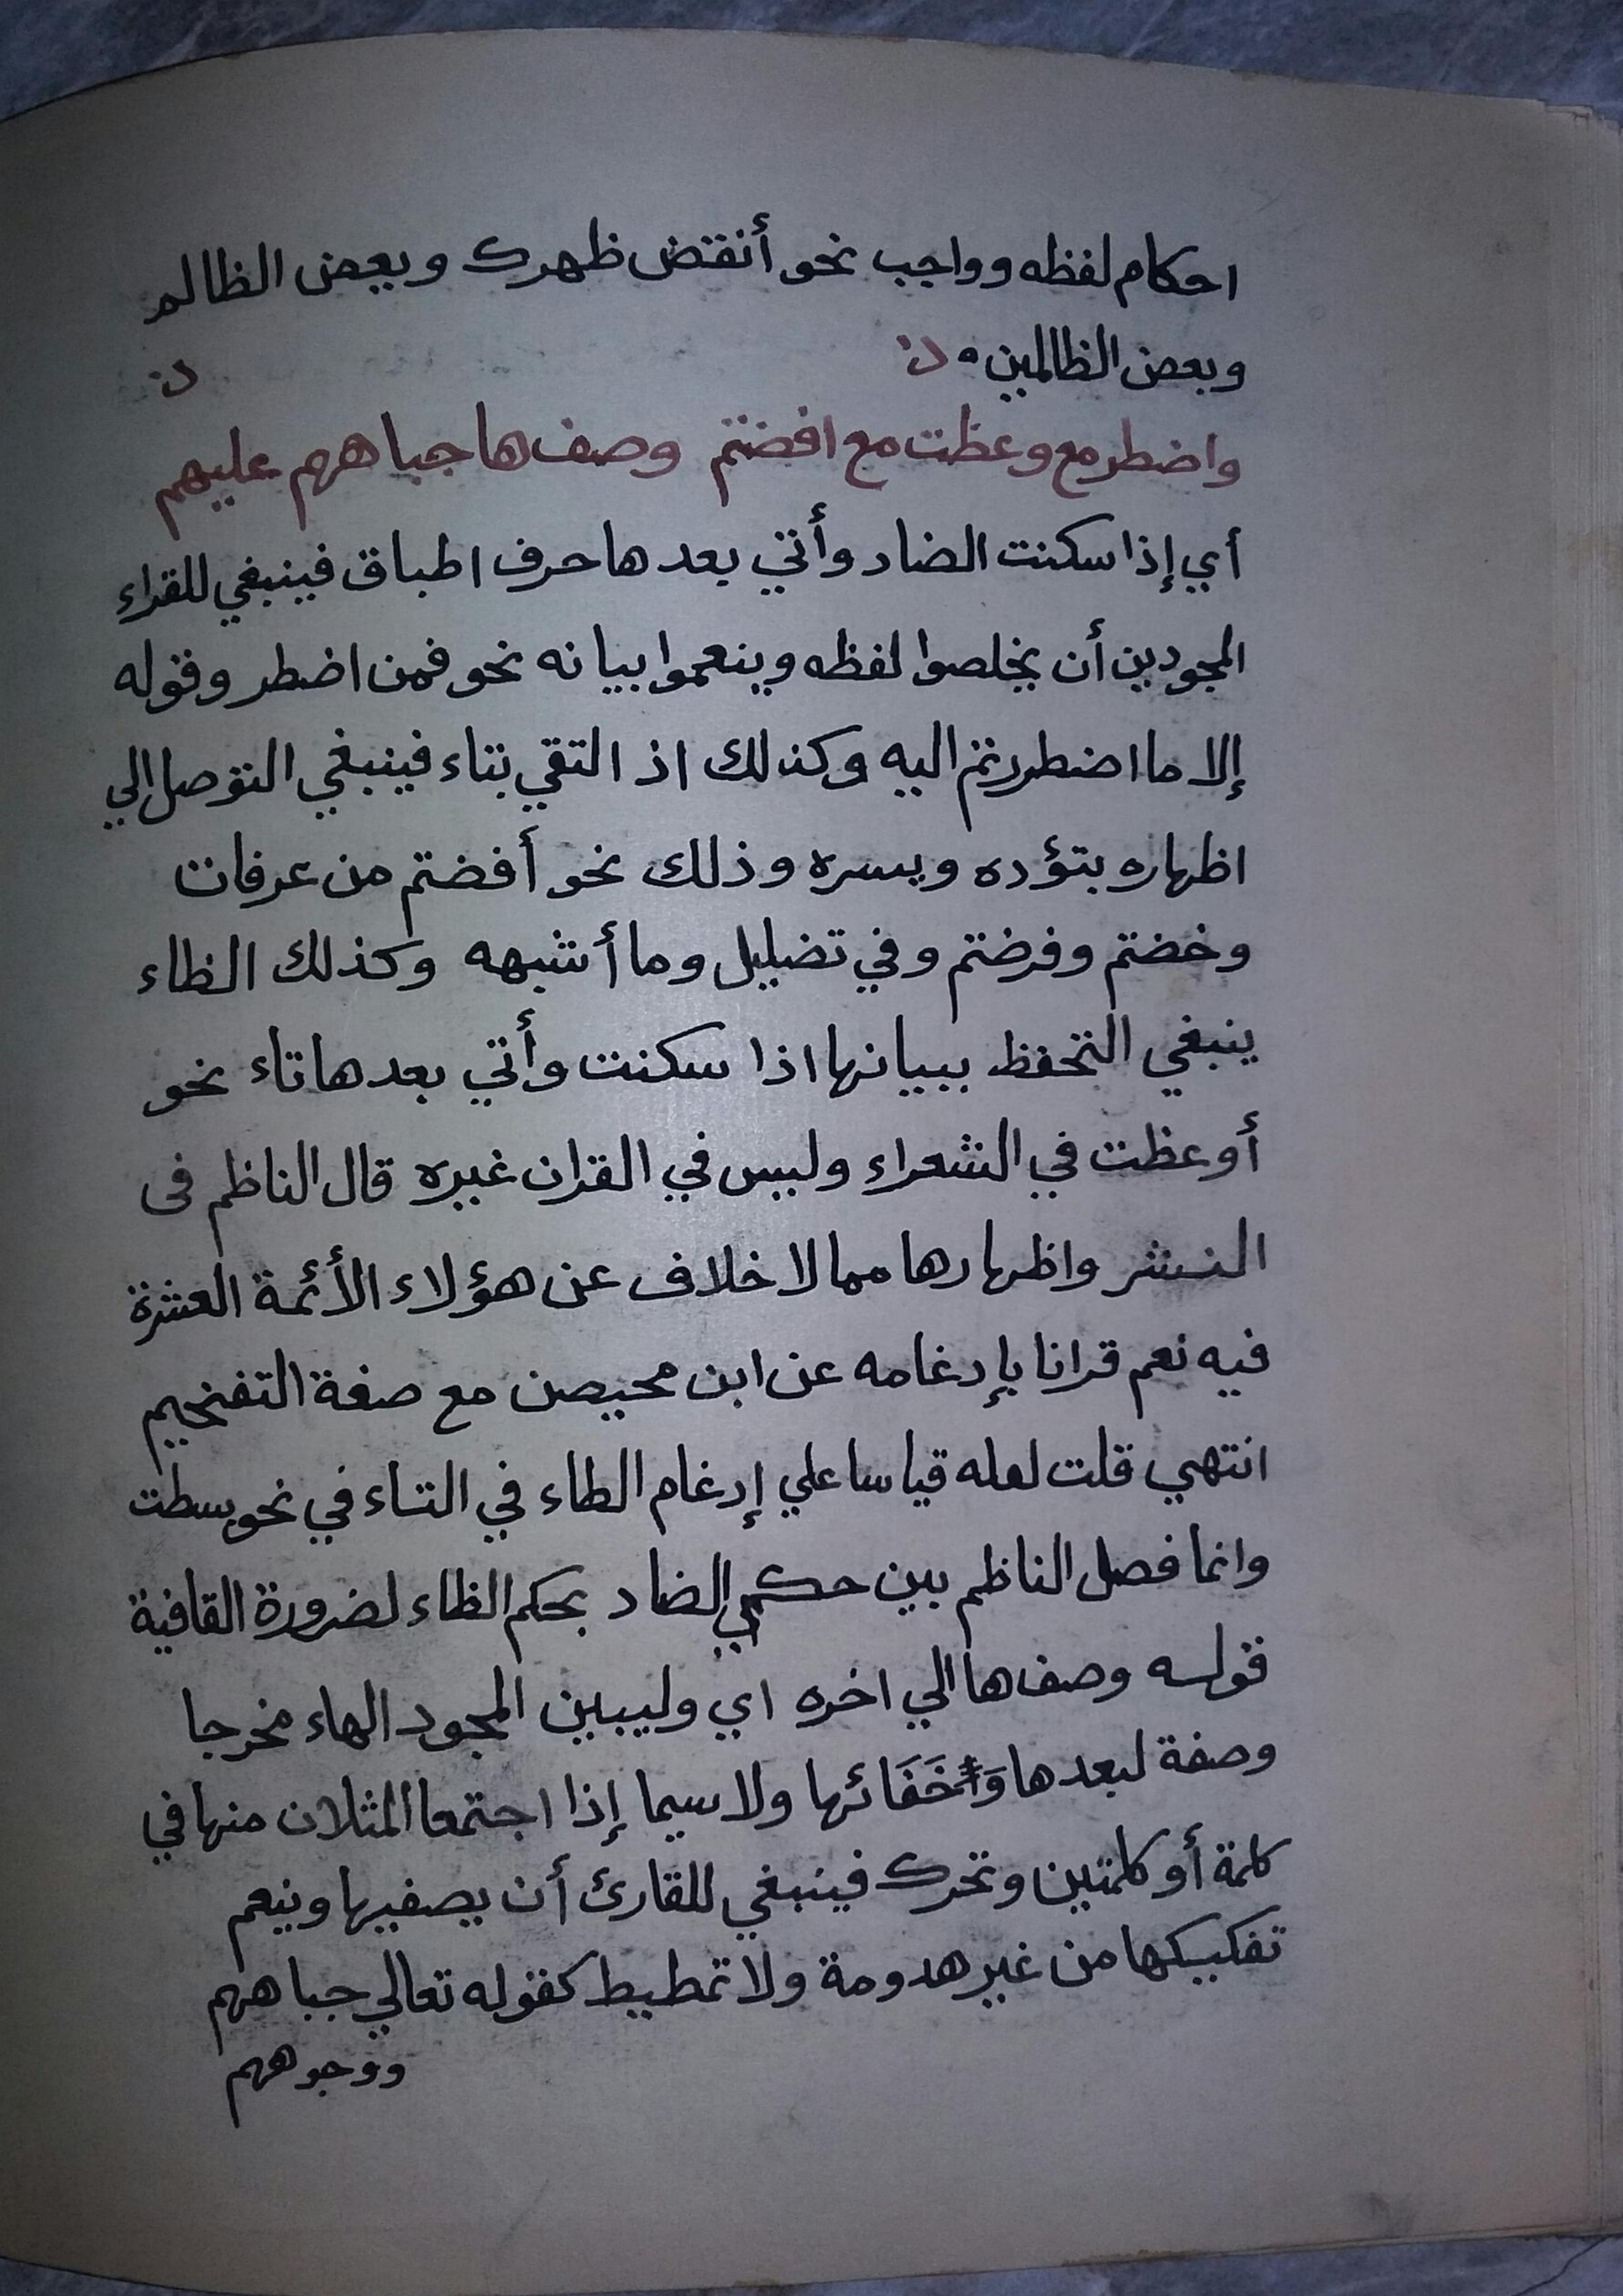 احكام لفظه وواجب نحو أنقض ظهرك وبعض الظالم
وبعض الظالمين ه
واضطر مع وعظت مع افضتم وصف ها جباههم عليهم
أي إذا سكنت الضاد وأتي بعدها حرف اطباق فينبغي للقراء
المجودين أن يخلصوا لفظه وينعموا بيانه نحو فمن اضطر وقوله
إلا ما اضطررتم اليه وكذلك اذ التقي بتاء فينبغي التوصل الي
اظهاره بتؤده ويسره وذلك نحو أفضتم من عرفات
وخضتم وفرضتم وفي تضليل وما أشبهه وكذلك الظاء
ينبغي التحفظ ببيانها اذا سكنت وأتي بعدها تاء نحو
أوعظت في الشعراء وليس في القران غيره قال الناظم فى
النشر واظهارها مما لا خلاف عن هؤلاء الأئمة العشرة
فيه نعم قرانا بإدغامه عن ابن محيصن مع صفة التفخيم
انتهي قلت لعله قياسا علي إدغام الطاء في التاء في نحو بسطت
وانما فصل الناظم بين حكمي الضاد بحكم الظاء لضرورة القافية
قوله وصف ها الي اخره اي وليبين المجود الهاء مخرجا
وصفة لبعدها وَخَفَائها ولا سيما إذا اجتمعا المثلان منها في
كلمة أو كلمتين وتحرك فينبغي للقارئ أن يصفيها وينعم
تفكيكها من غير هدومة ولا تمطيط كقوله تعالي جباههم
ووجوههم